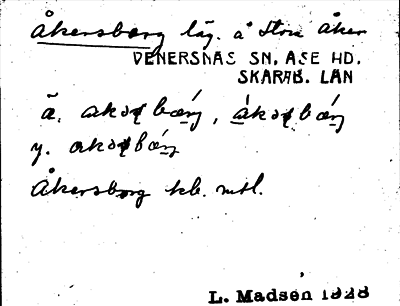 Åkersberg läg. å Stora Åker
VENERSNÄS SN. ÅSE HD.
SKARAB. LÄN
ä. akəɽbæŋ, ákəɽbǽŋ
y. akəɽbæŋ
Åkersborg kb. mtl.
L. Madsén 1928